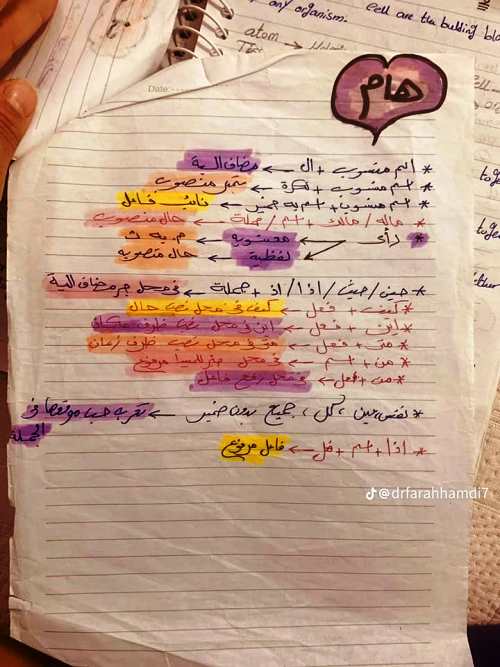 any organism.
Cell are the building blo
atom
Date:
هام
* اسم منسوب + ال ← مضاف الية
* اسم منسوب + نكرة ← تميز منصوب
* اسم منسوب + اسم به ضمير ← نائب فاعل
* ماله / مالك + اسم / جملة ← حال منصوب
* رأى ← معنوية ← م. به ث
لفظية ← حال منصوبة
* حين / حيث / اذا / اذ + جملة ← في محل جر مضاف الية
* كيف + فعل ← كيف في محل نصب حال
* اين + فعل ← اين في محل نصب ظرف مكان
* متى + فعل ← متى في محل نصب ظرف زمان
* من + اسم ← في محل خبر للمبتدأ مرفوع
* من + فعل ← في محل رفع فاعل
* نفس، عين، كل، جميع بدون ضمير ← تعرب حسب موقعها في
الجملة
* اذا + اسم + فعل ← فاعل مرفوع
@drfarahhamdi7